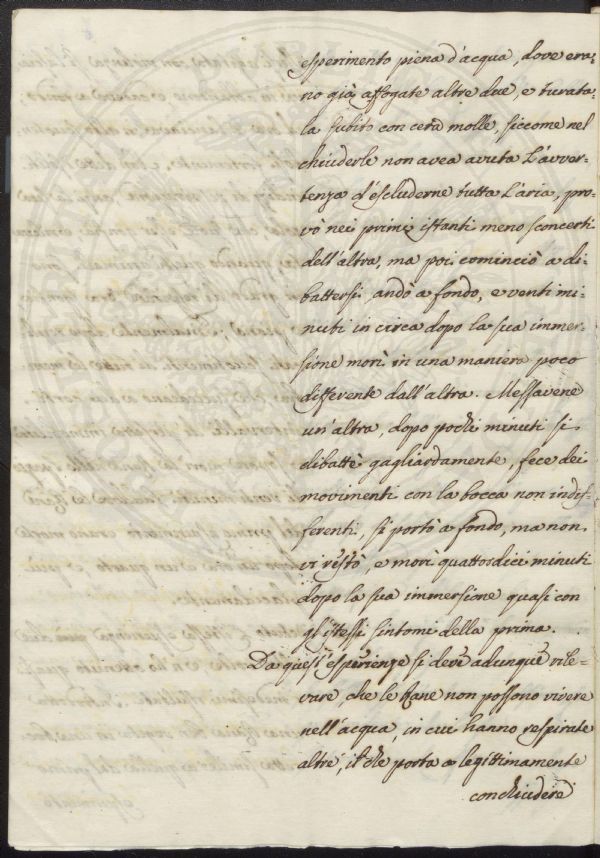 esperimento piena d'acqua, dove era-
no già affogate altre due, e turata-
la subito con cera molle, siccome nel
chiuderle non avea avuta l'avver-
tenza d'escluderne tutta l'aria, pro-
vò nei primi istanti meno sconcerti
dell'altra, ma poi cominciò a di-
battersi andò a fondo, e venti mi-
nuti in circa dopo la sua immer-
sione morì in una maniera poco
differente dall'altra. Messavene
un'altra, dopo pochi minuti si
dibattè gagliardamente, fece dei
movimenti con la bocca non indif-
ferenti, si portò a fondo, ma non
vi restò, e morì quattordici minuti
dopo la sua immersione quasi con
gl'istessi sintomi della prima.
Da queste esperienze si deve adunque rile-
vare, che le Rane non possono vivere
nell'acqua, in cui hanno respirate
altre, il che porta a legittimamente
conchiudere